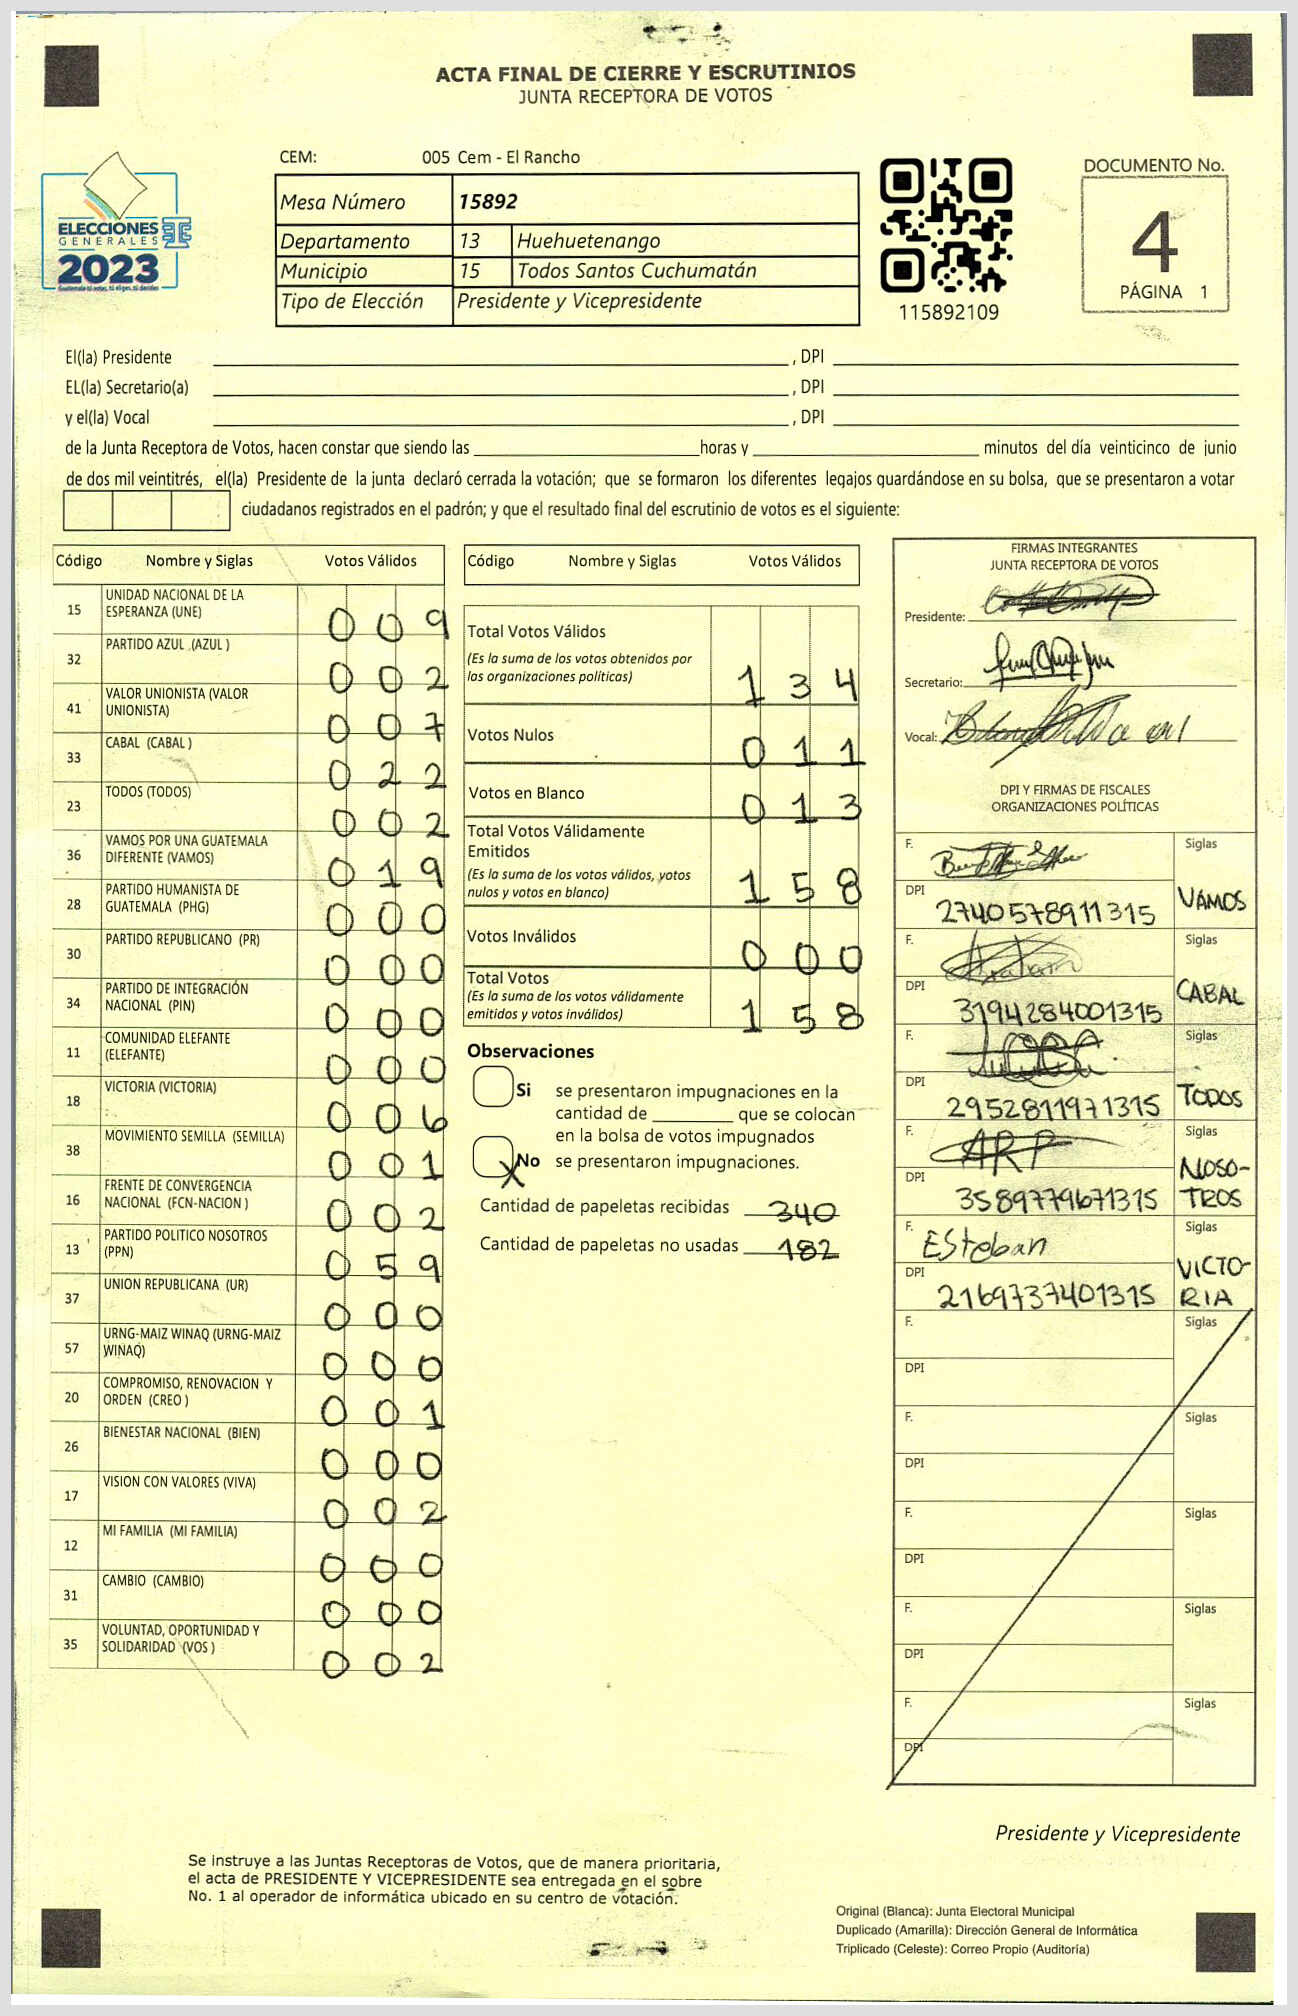 ACTA FINAL DE CIERRE Y ESCRUTINIOS
JUNTA RECEPTORA DE VOTOS
ELECCIONES
GENERALES
2023
Guatemala tú votas, tú eliges, tú decides
CEM: 005 Cem - El Rancho
Mesa Número 15892
Departamento 13 Huehuetenango
Municipio 15 Todos Santos Cuchumatán
Tipo de Elección Presidente y Vicepresidente
115892109
DOCUMENTO No.
4
PÁGINA 1
El(la) Presidente , DPI
EL(la) Secretario(a) , DPI
y el(la) Vocal , DPI
de la Junta Receptora de Votos, hacen constar que siendo las horas y minutos del día veinticinco de junio
de dos mil veintitrés, el(la) Presidente de la junta declaró cerrada la votación; que se formaron los diferentes legajos guardándose en su bolsa, que se presentaron a votar
ciudadanos registrados en el padrón; y que el resultado final del escrutinio de votos es el siguiente:
Código Nombre y Siglas Votos Válidos
15 UNIDAD NACIONAL DE LA
ESPERANZA (UNE) 0 0 9
32 PARTIDO AZUL (AZUL ) 0 0 2
41 VALOR UNIONISTA (VALOR
UNIONISTA) 0 0 7
33 CABAL (CABAL ) 0 2 2
23 TODOS (TODOS) 0 0 2
36 VAMOS POR UNA GUATEMALA
DIFERENTE (VAMOS) 0 1 9
28 PARTIDO HUMANISTA DE
GUATEMALA (PHG) 0 0 0
30 PARTIDO REPUBLICANO (PR) 0 0 0
34 PARTIDO DE INTEGRACIÓN
NACIONAL (PIN) 0 0 0
11 COMUNIDAD ELEFANTE
(ELEFANTE) 0 0 0
18 VICTORIA (VICTORIA) 0 0 6
38 MOVIMIENTO SEMILLA (SEMILLA) 0 0 1
16 FRENTE DE CONVERGENCIA
NACIONAL (FCN-NACION ) 0 0 2
13 PARTIDO POLITICO NOSOTROS
(PPN) 0 5 9
37 UNION REPUBLICANA (UR) 0 0 0
57 URNG-MAIZ WINAQ (URNG-MAIZ
WINAQ) 0 0 0
20 COMPROMISO, RENOVACION Y
ORDEN (CREO ) 0 0 1
26 BIENESTAR NACIONAL (BIEN) 0 0 0
17 VISION CON VALORES (VIVA) 0 0 2
12 MI FAMILIA (MI FAMILIA) 0 0 0
31 CAMBIO (CAMBIO) 0 0 0
35 VOLUNTAD, OPORTUNIDAD Y
SOLIDARIDAD (VOS ) 0 0 2
Código Nombre y Siglas Votos Válidos
Total Votos Válidos
(Es la suma de los votos obtenidos por
las organizaciones políticas) 1 3 4
Votos Nulos 0 1 1
Votos en Blanco 0 1 3
Total Votos Válidamente
Emitidos
(Es la suma de los votos válidos, votos
nulos y votos en blanco) 1 5 8
Votos Inválidos 0 0 0
Total Votos
(Es la suma de los votos válidamente
emitidos y votos inválidos) 1 5 8
Observaciones
Si se presentaron impugnaciones en la
cantidad de que se colocan
en la bolsa de votos impugnados
X No se presentaron impugnaciones.
Cantidad de papeletas recibidas 340
Cantidad de papeletas no usadas 182
FIRMAS INTEGRANTES
JUNTA RECEPTORA DE VOTOS
Presidente:
Secretario:
Vocal:
DPI Y FIRMAS DE FISCALES
ORGANIZACIONES POLÍTICAS
F. Siglas
DPI 2740578911315 VAMOS
F. Siglas
DPI 3194284001315 CABAL
F. Siglas
DPI 2952811971315 TODOS
F. ARP Siglas
NOSO-
DPI 3589779671315 TROS
F. Esteban Siglas
VICTO-
DPI 2169737401315 RIA
F. Siglas
DPI
F. Siglas
DPI
F. Siglas
DPI
F. Siglas
DPI
F. Siglas
DPI
Presidente y Vicepresidente
Se instruye a las Juntas Receptoras de Votos, que de manera prioritaria,
el acta de PRESIDENTE Y VICEPRESIDENTE sea entregada en el sobre
No. 1 al operador de informática ubicado en su centro de votación.
Original (Blanca): Junta Electoral Municipal
Duplicado (Amarilla): Dirección General de Informática
Triplicado (Celeste): Correo Propio (Auditoría)